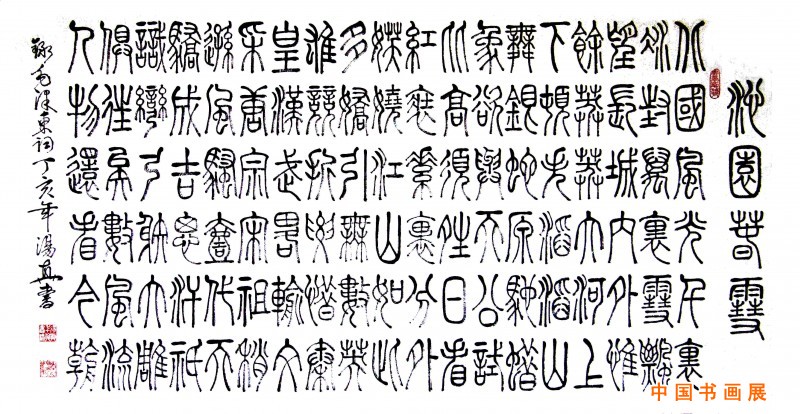 沁園春雪
北國風光千里
冰封萬里雪飄
望長城內外惟
餘莽莽大河上
下頓失滔滔山
舞銀蛇原馳蠟
象欲與天公試
比高須晴日看
紅裝素裹分外
妖嬈江山如此
多嬌引無數英
雄競折腰惜秦
皇漢武略輸文
采唐宗宋祖稍
遜風騷壹代天
驕成吉思汗祇
識彎弓射大雕
俱往矣數風流
人物還看今朝
錄毛澤東詞丁亥年湯真書
中国书画展